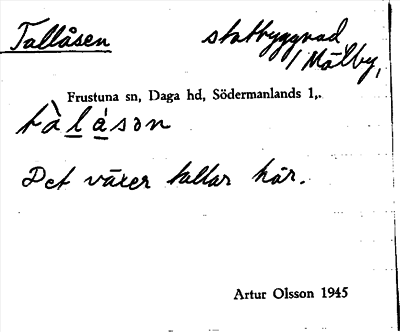 Tallåsen
slåtbyggnad
i Mälby,
Frustuna sn, Daga hd, Södermanlands l,.
tàlǻson
Det växer tallar här.
Artur Olsson 1945